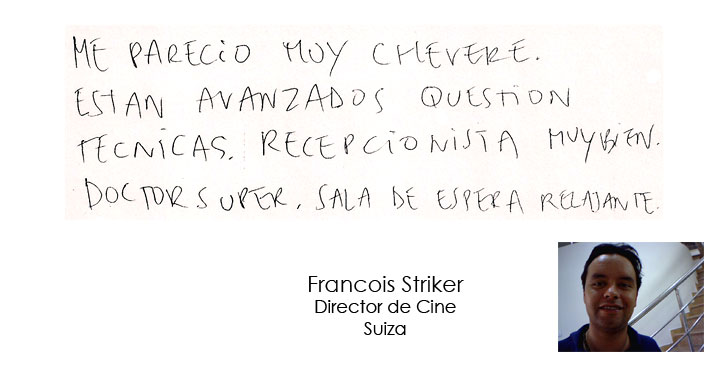 ME PARECIO MUY CHEVERE.
ESTAN AVANZADOS QUESTION
TECNICAS. RECEPCIONISTA MUY BIEN.
DOCTOR SUPER. SALA DE ESPERA RELAJANTE.
Francois Striker
Director de Cine
Suiza